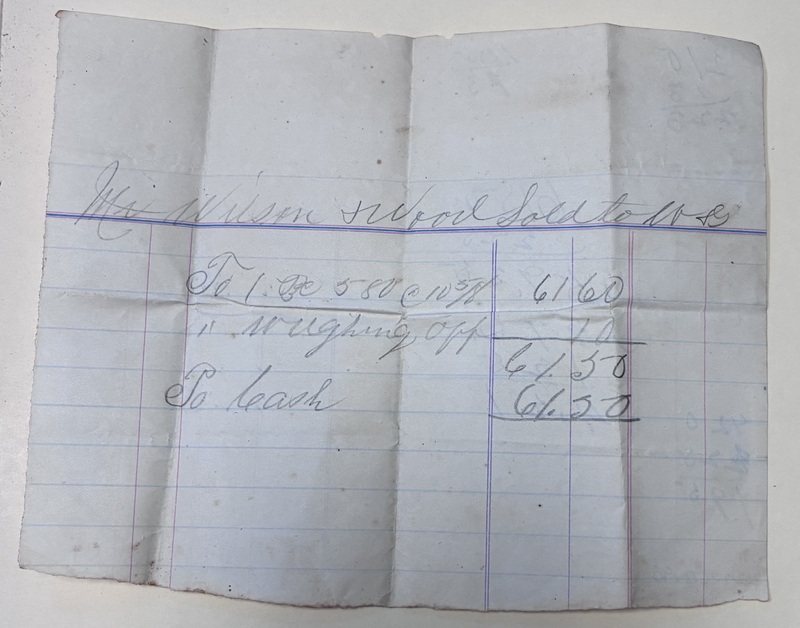 Mr Wilson & Wood Sold to W &
To 1. 580 @ 10 5/8 61 60
" weighing off 10
61.50
To Cash 61.50